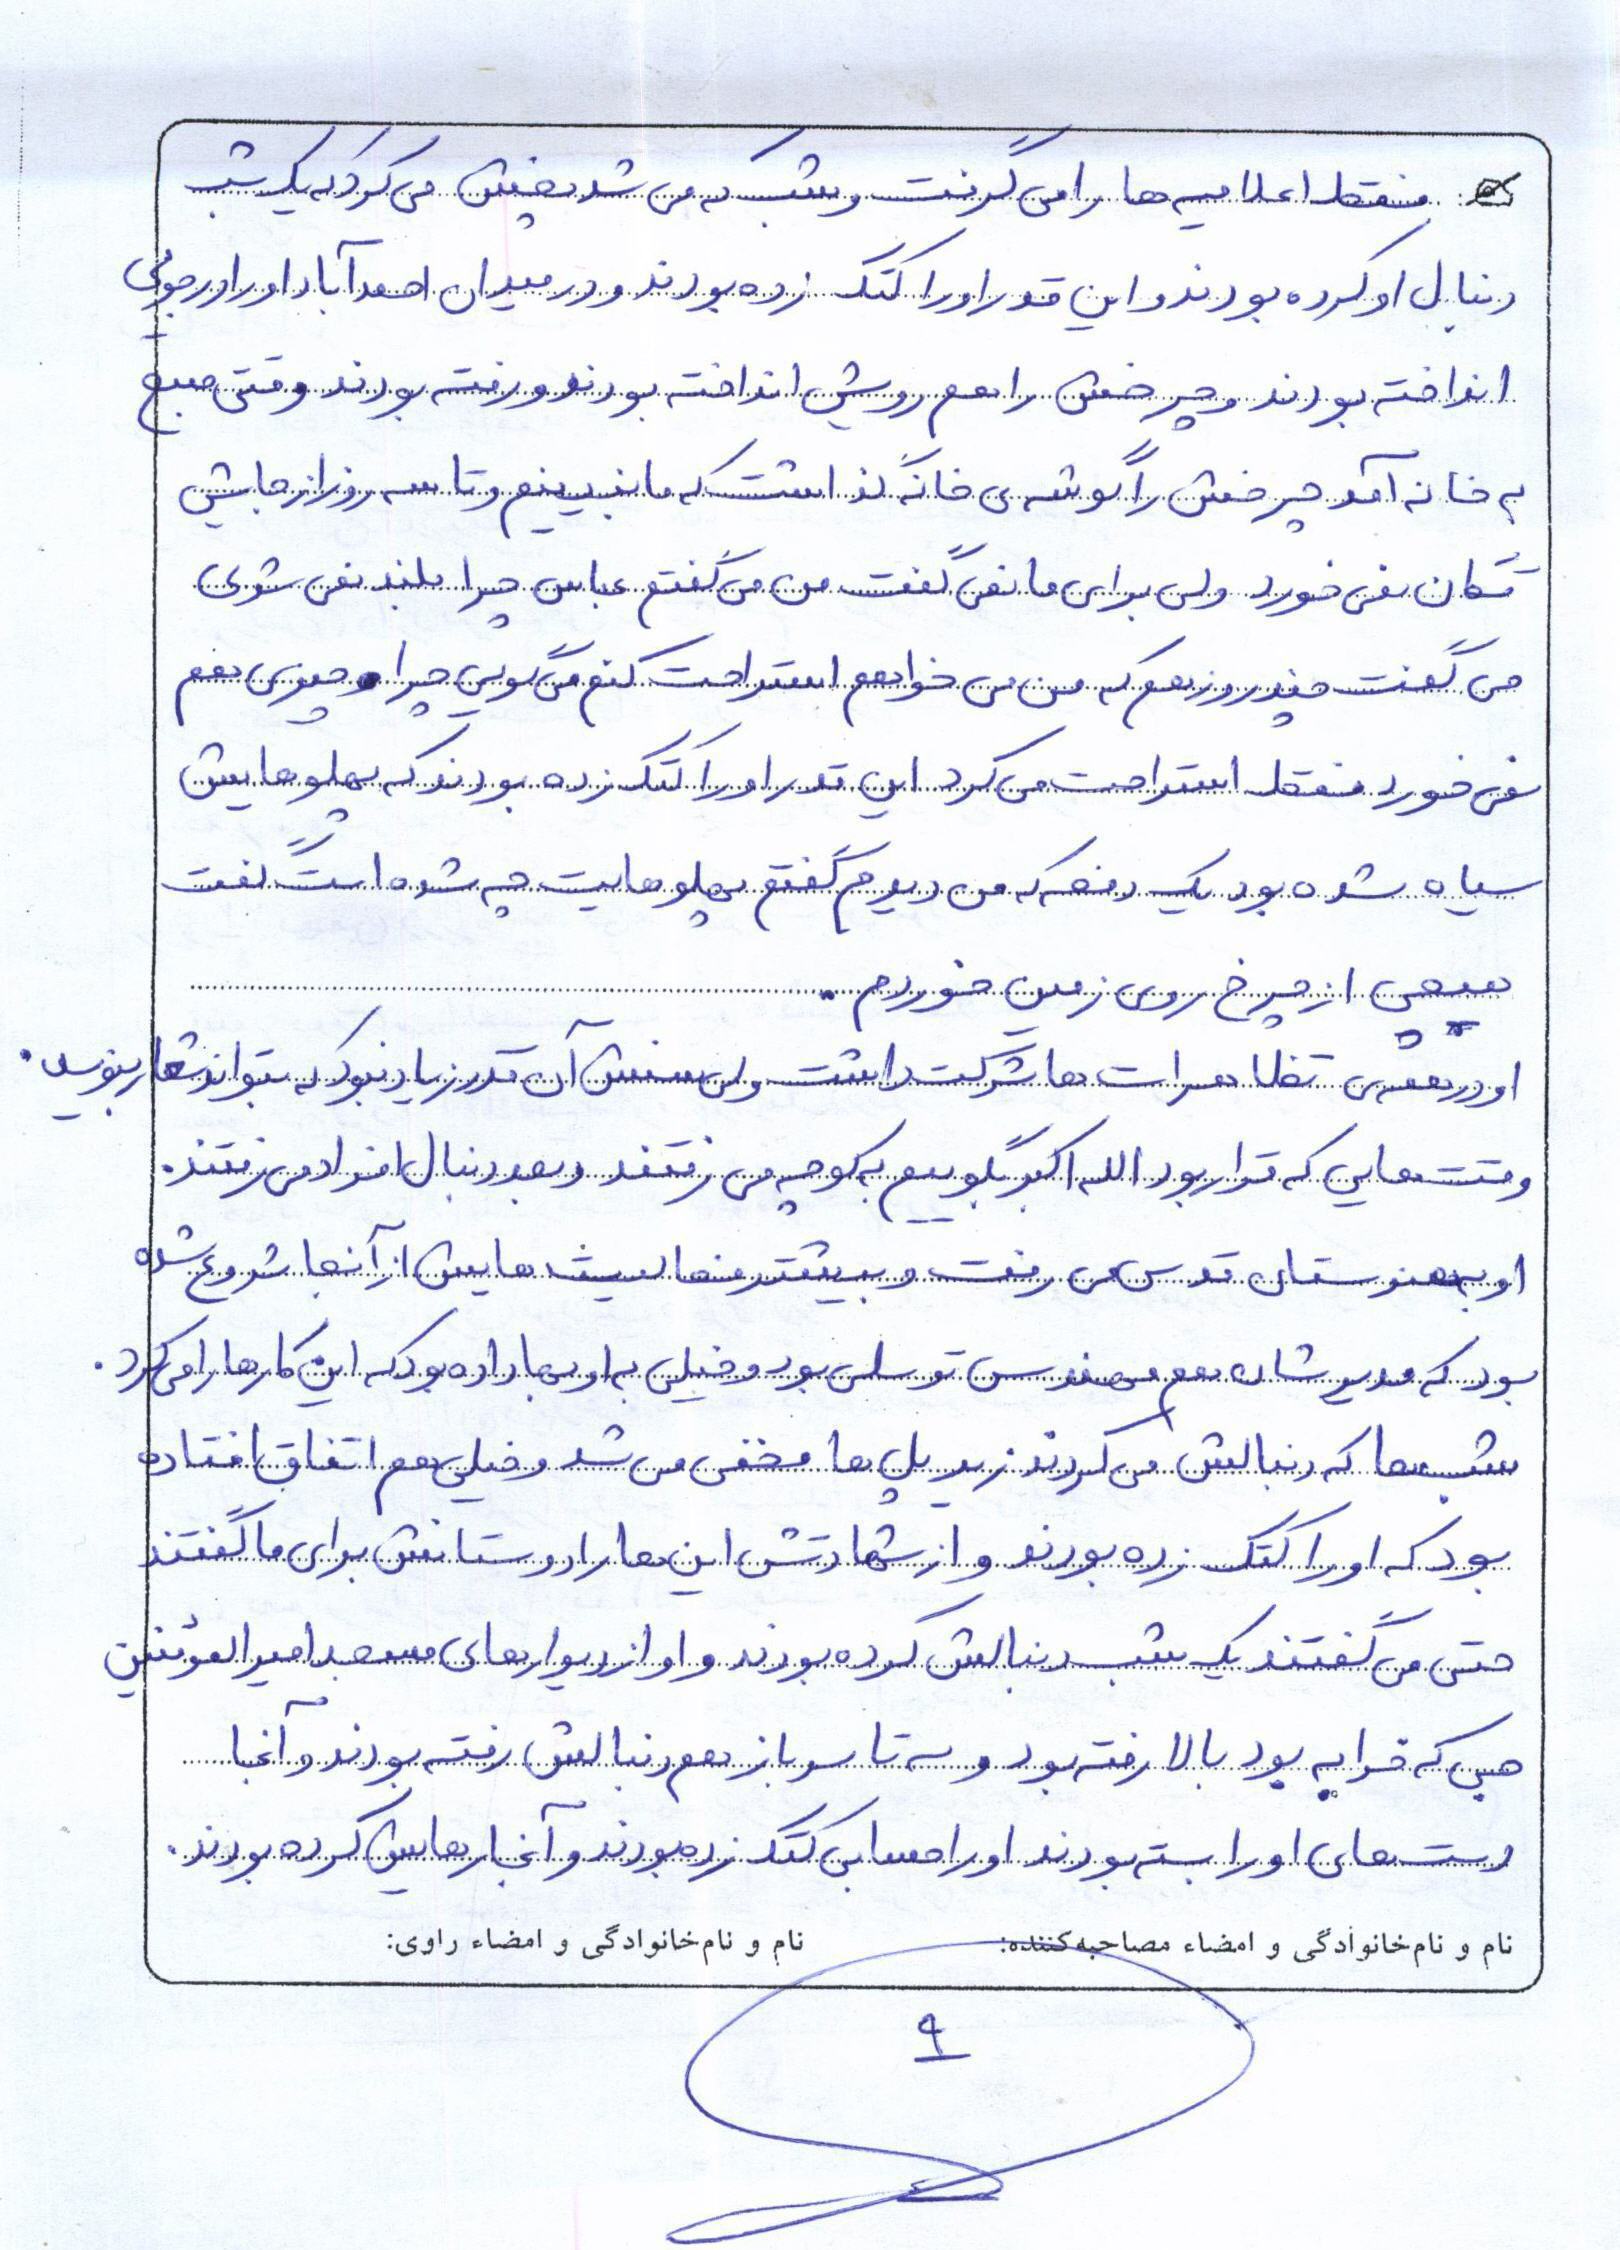 فقط اعلامیه ها را می گرفت و شب که می شد پخش می کرد که یک شب
دنبال او کرده بودند و این قدر او را کتک زده بودند و در میدان احمدآباد او را در جوئی
انداخته بودند و چرخش را هم رویش انداخته بودند و رفته بودند وقتی صبح
به خانه آمد چرخش را گوشه ی خانه گذاشت که ما نبینیم و تا سه روز از جایش
تکان نمی خورد ولی برای ما نمی گفت من می گفتم عباس چرا بلند نمی شوی
می گفت چند روز هم که من می خواهم استراحت کنم می گویی چرا و چیزی هم
نمی خورد فقط استراحت می کرد این قدر او را کتک زده بودند که پهلوهایش
سیاه شده بود یک دفعه که من دیدم گفتم پهلوهایت چه شده است گفت
هیچی از چرخ روی زمین خوردم.
او در همه ی تظاهرات ها شرکت داشت ولی سنش آن قدر زیاد نبود که بتواند شعار بنویسد.
وقت هایی که قرار بود الله اکبر بگوییم به کوچه می رفتند و بعد دنبال افراد می رفتند.
او به هنرستان قدس می رفت و بیشتر فعالیت هایش از آنجا شروع شده
بود که مدیرشان هم مهندس توسلی بود و خیلی به او بها داده بود که این کارها را می کرد.
شب ها که دنبالش می کردند زیر پل ها مخفی می شد و خیلی هم اتفاق افتاده
بود که او را کتک زده بودند و از شهادتش این ها را دوستانش برای ما گفتند
حتی می گفتند یک شب دنبالش کرده بودند و او از دیوارهای مسجد امیرالمؤمنین
که خرابه بود بالا رفته بود و سه تا سرباز هم دنبالش رفته بودند و آنجا
دست های او را بسته بودند او را حسابی کتک زده بودند و آنجا رهایش کرده بودند.
نام و نام‌خانوادگی و امضاء مصاحبه‌کننده: نام و نام‌خانوادگی و امضاء راوی:
۹